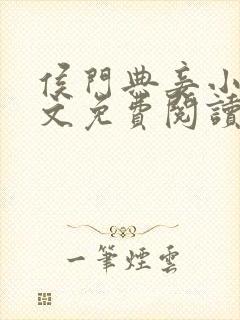 侯門典妾小
文免費閱讀
一筆煙雲